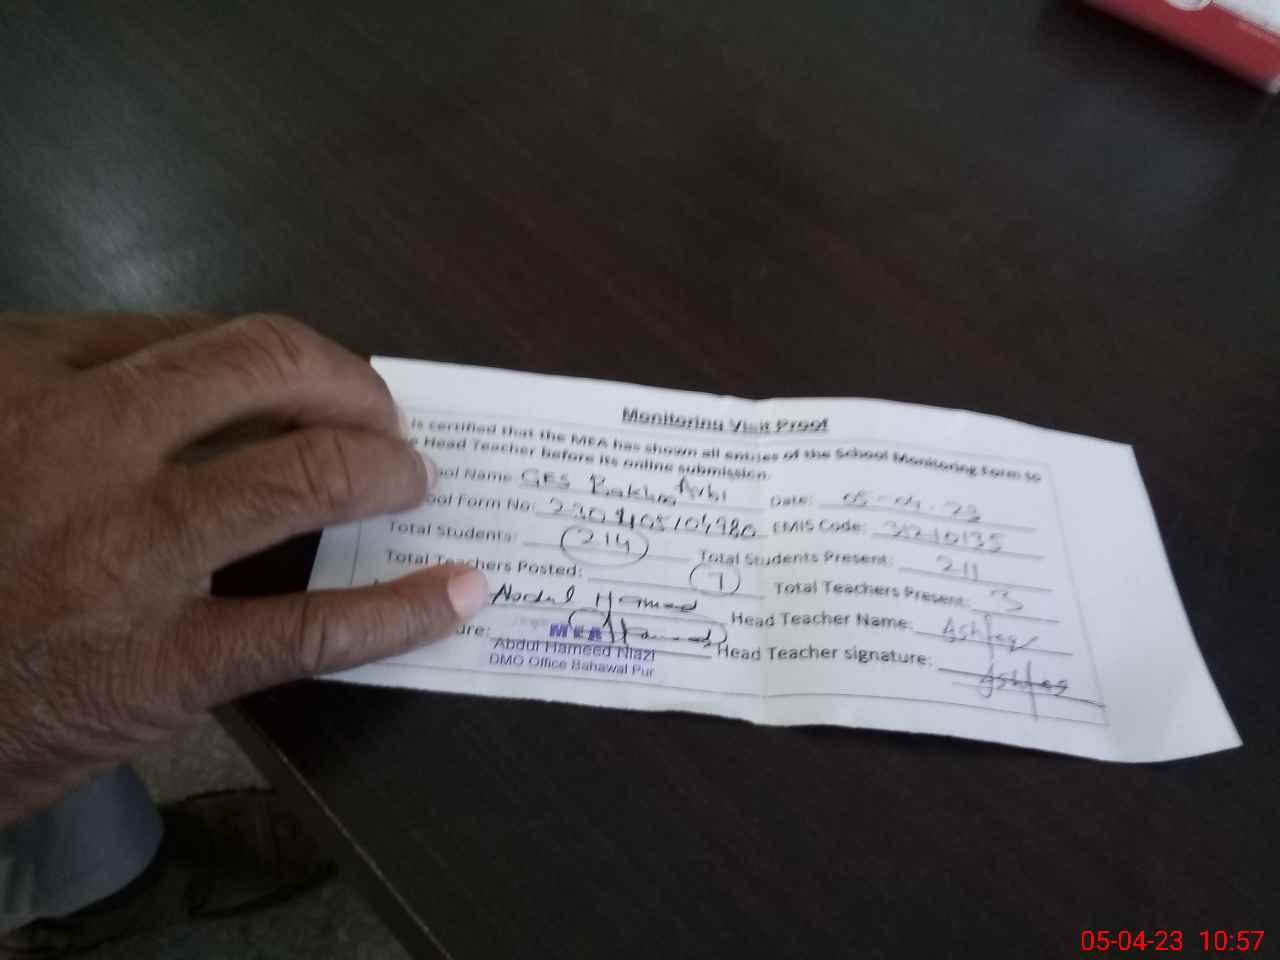 Monitoring Visit Proof
is certified that the MEA has shown all entries of the School Monitoring Form to
Head Teacher before its online submission.
ool Name GES Date: 05-04-23
ool Form No: EMIS Code:
Total Students: 214 Total Students Present: 211
Total Teachers Posted: 7 Total Teachers Present: 3
Hameed Head Teacher Name: Ashfaq
ure: Head Teacher signature:
MEA
Abdul Hameed Niazi
DMO Office Bahawal Pur
05-04-23 10:57